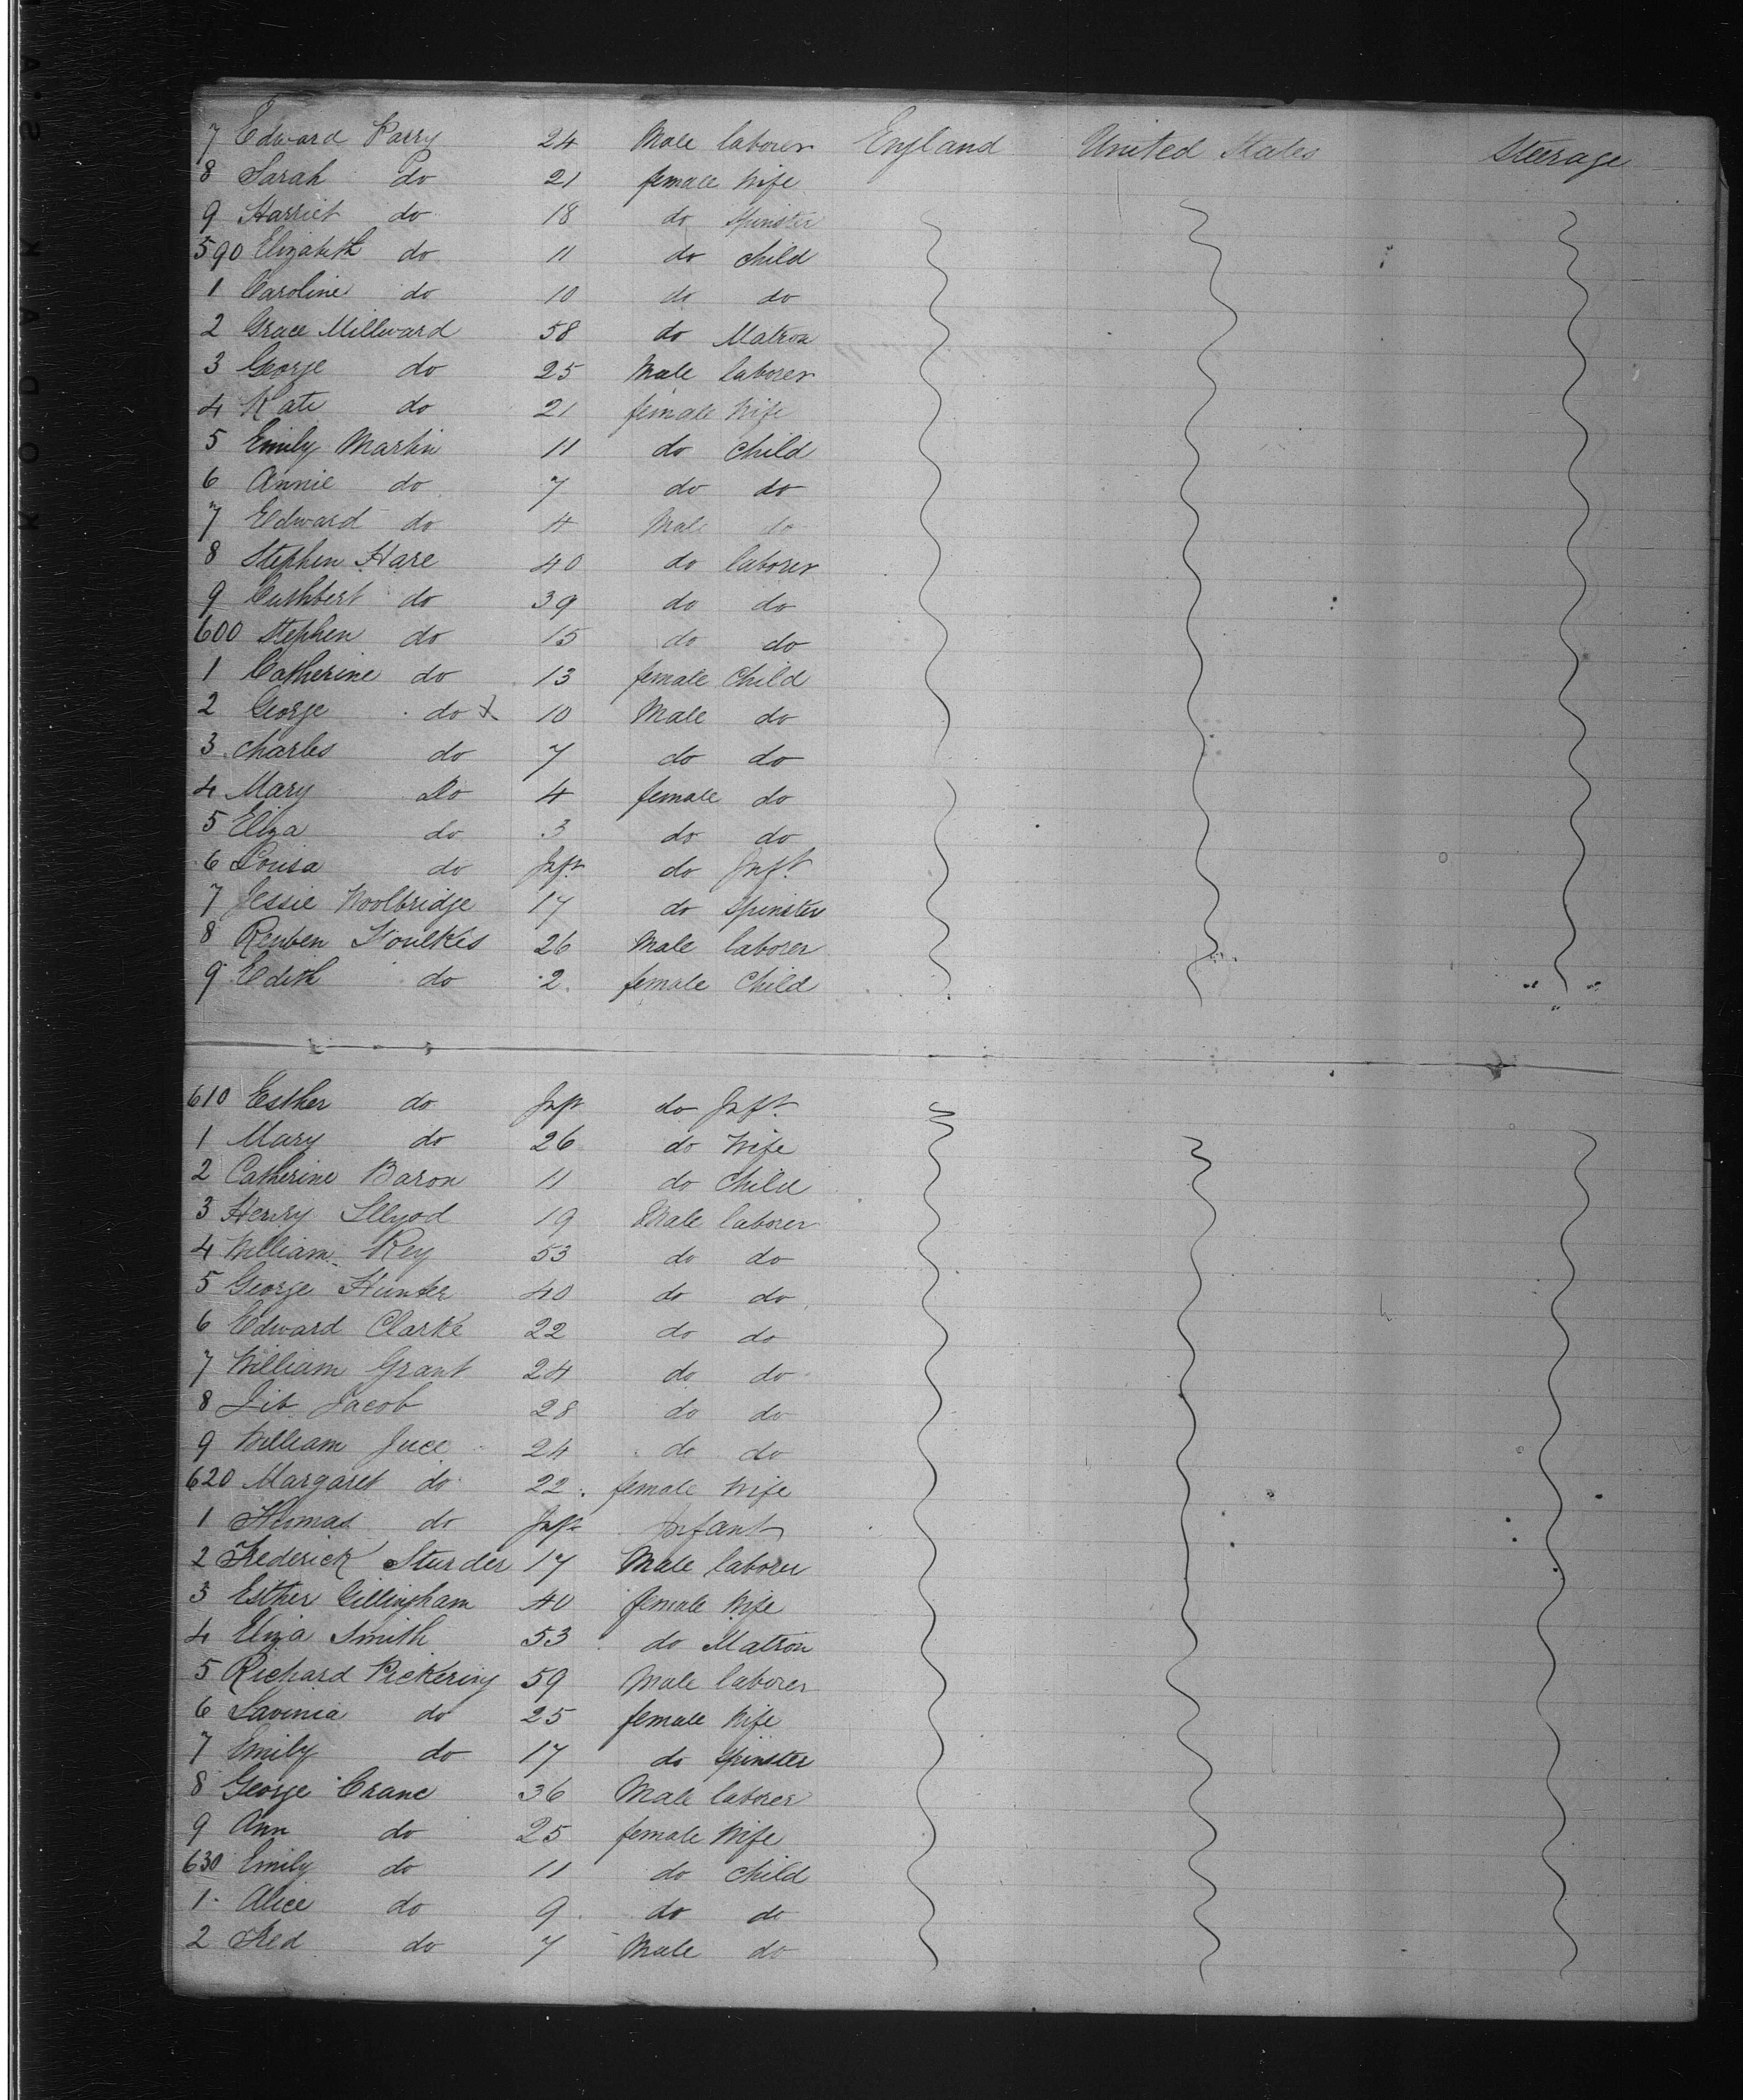 7 Edward Parry 24 Male laborer England United States Steerage
8 Sarah Do 21 female Wife
9 Harriet do 18 do Spinster
590 Elizabeth do 11 do Child
1 Caroline do 10 do do
2 Grace Millward 58 do Matron
3 George do 25 Male laborer
4 Kate do 21 female Wife
5 Emily Martin 11 do Child
6 Annie do 7 do do
7 Edward do 4 Male do
8 Stephen Hare 40 do laborer
9 Cuthbert do 39 do do
600 Stephen do 15 do do
1 Catherine do 13 female Child
2 George do x 10 Male do
3 Charles do 7 do do
4 Mary Do 4 female do
5 Eliza do 3 do do
6 Louisa do Inft do Inft
7 Jessie Woolbridge 17 do Spinster
8 Reuben Foulkes 26 Male laborer
9 Edith do 2 female Child
610 Esther do Inft do Inft
1 Mary do 26 do Wife
2 Catherine Baron 11 do Child
3 Henry Lllyod 19 Male laborer
4 William Key 53 do do
5 George Hunter 40 do do
6 Edward Clarke 22 do do
7 William Grant 24 do do
8 Jacob 28 do do
9 William Juce 24 do do
620 Margaret do 22 female Wife
1 Thomas do Inft Infant
2 Frederick Sturder 17 Male laborer
3 Esther Gillingham 40 female Wife
4 Eliza Smith 53 do Matron
5 Richard Pickering 59 Male laborer
6 Lavinia do 25 female Wife
7 Emily do 17 do Spinster
8 George Crane 36 Male laborer
9 Ann do 25 female Wife
630 Emily do 11 do Child
1 Alice do 9 do do
2 Fred do 7 Male do